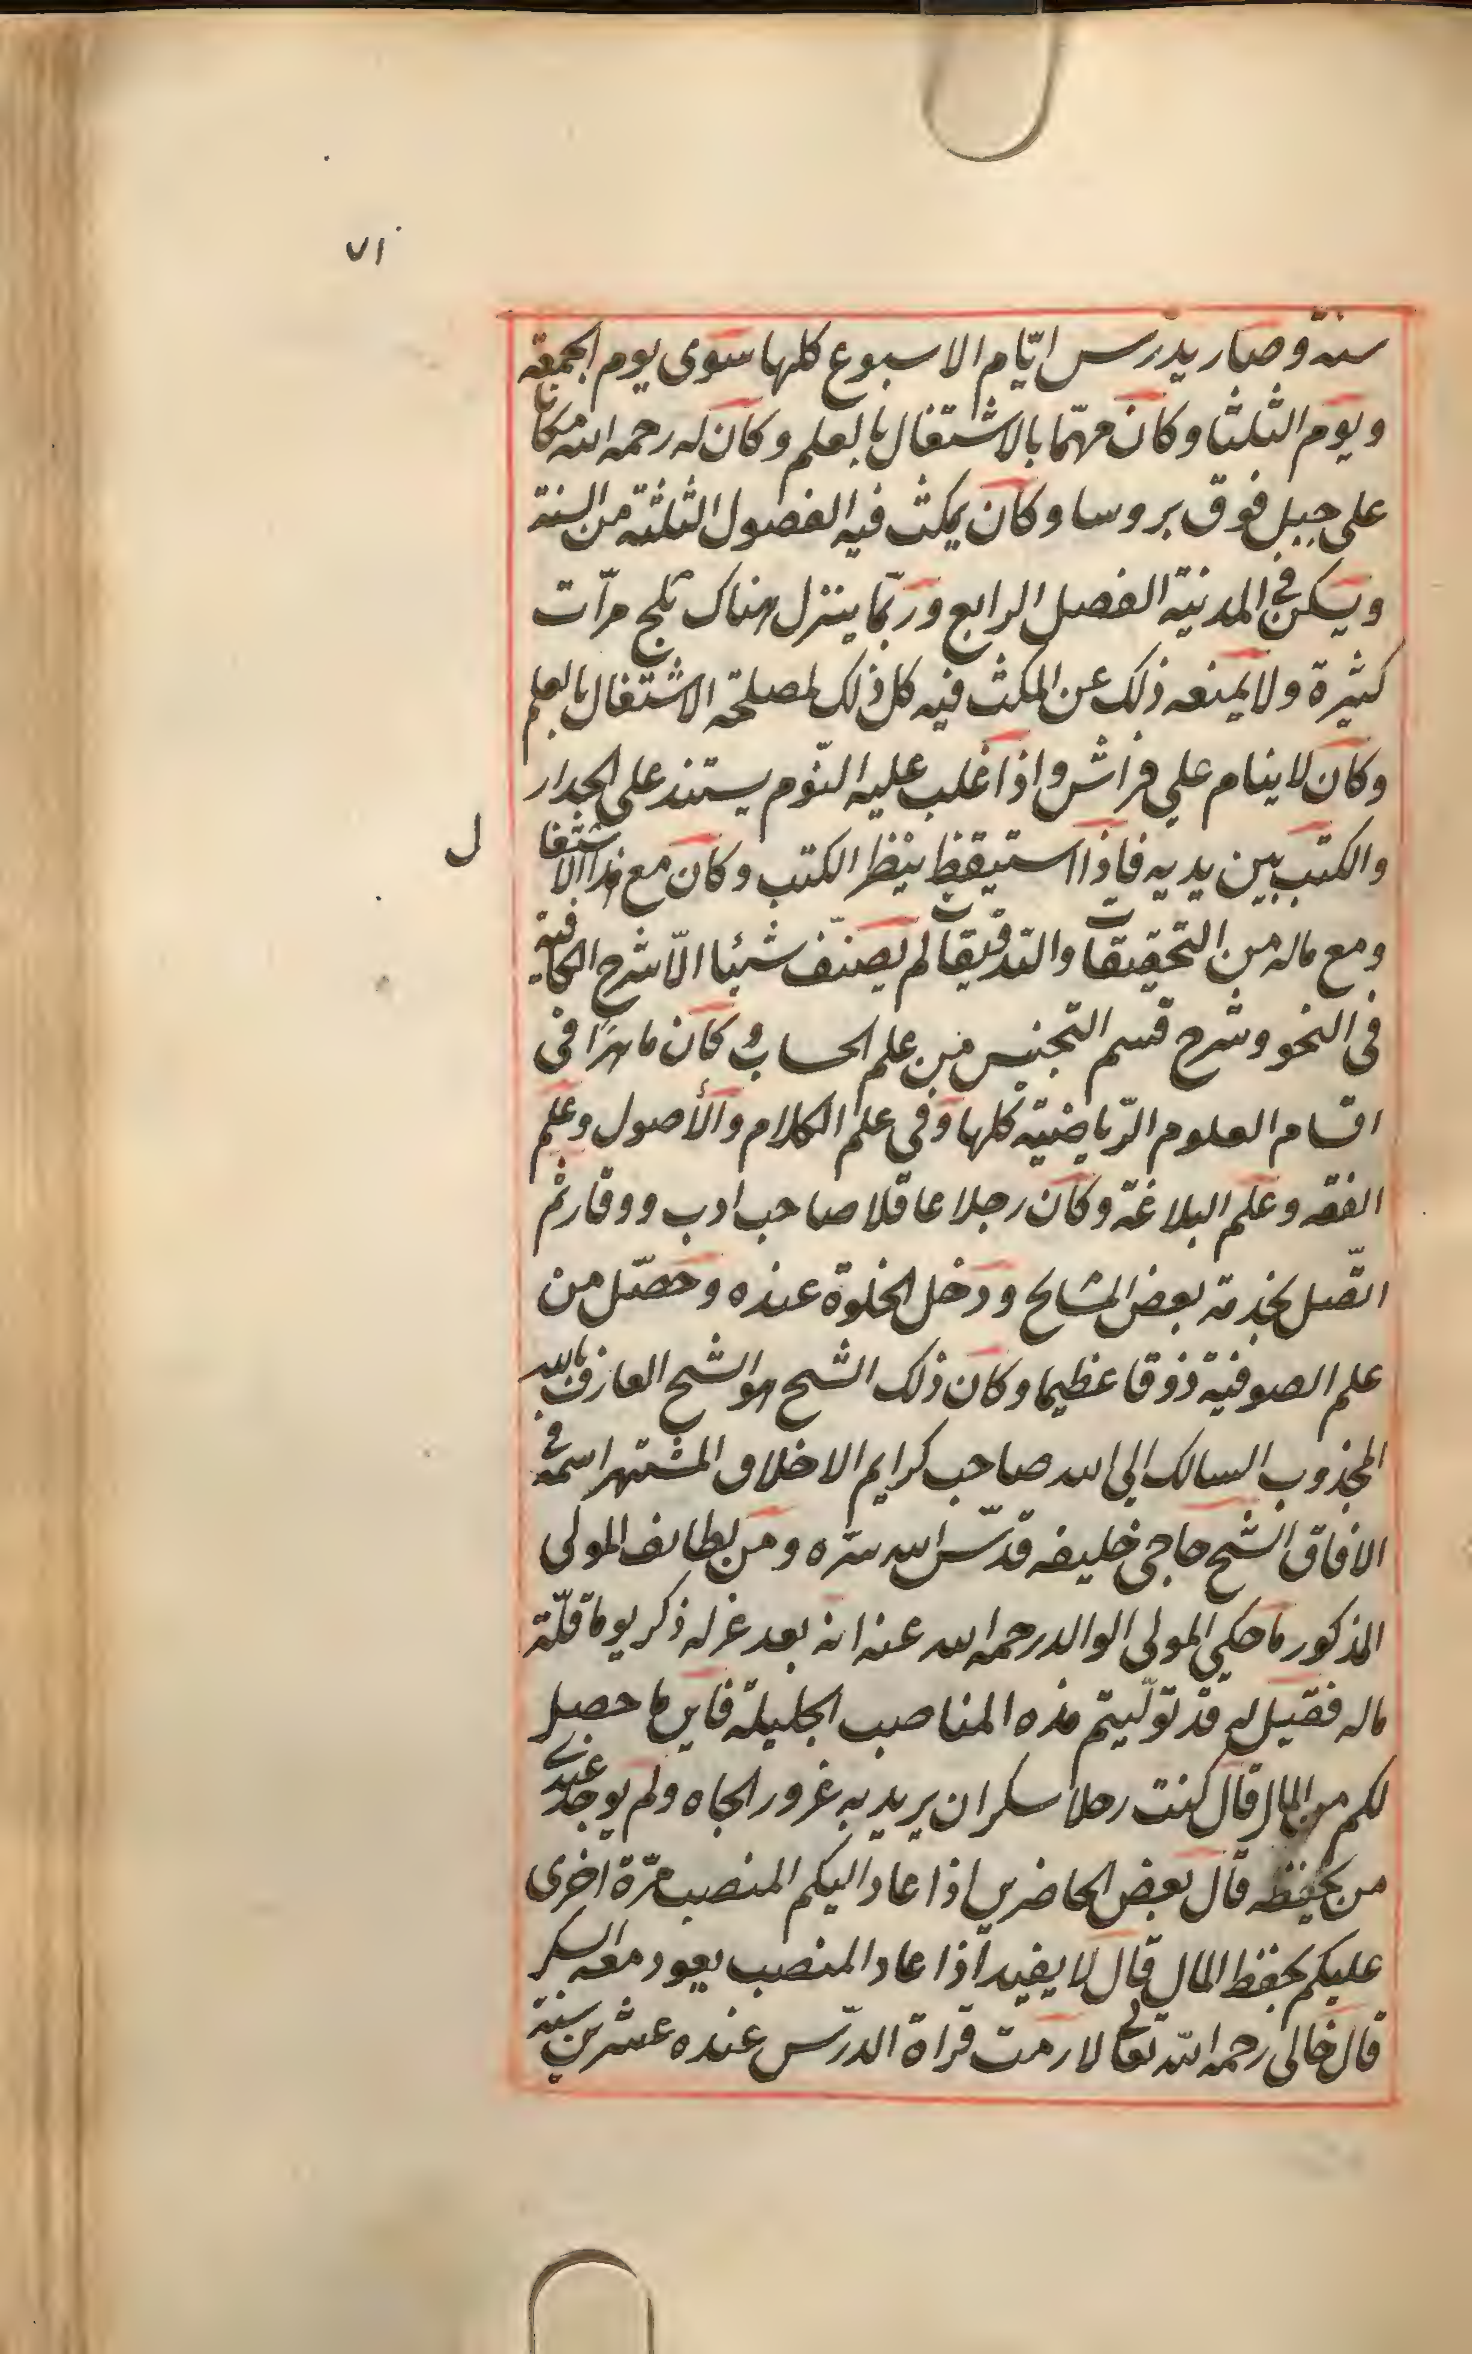 ٧١
سنة وصار يدرس ايّام الاسبوع كلها سوى يوم الجمعة
ويوم الثلثا وكان مهتما بالاشتغال بالعلم وكان له رحمه الله مكان
على جبل فوق بروسا وكان يمكث فيه الفصول الثلثة من السنة
ويسكن في المدينة الفصل الرابع وربّما ينزل هناك ثلج مرّات
كثيرة ولا يمنعه ذلك عن المكث فيه كل ذلك لمصلحة الاشتغال بالعلم
وكان لا ينام علي فراش واذا غلب عليه النّوم يستند على الجدار
والكتب بين يديه فاذا استيقظ ينظر الكتب وكان مع هذا الاشتغا
ل
ومع ماله من التحقيقات والتدقيقات لم يصنّف شيئا الّا شرح الكافية
في النحو وشرح قسم التجنيس من علم الحساب وكان ماهرًا في
اقسام العلوم الرّياضيّة كلها وفي علم الكلام والأصول وعلم
الفقه وعلم البلاغة وكان رجلا عاقلا صاحب ادب ووقار ثم
اتّصل بخدمة بعض المشايخ ودخل الخلوة عنده وحصّل من
علم الصوفية ذوقا عظيما وكان ذلك الشيخ هو الشيخ العارف بالله
المجذوب السالك الي الله صاحب كرايم الاخلاق المشتهر اسمه في
الافاق الشيخ حاجي خليفه قدّس الله سرّه ومن لطايف المولى
المذكور ما حكي المولى الوالد رحمه الله عنه انه بعد عزله ذكر يوما قلّة
ماله فقيل له قد تولّيتم هذه المناصب الجليلة فاين ما حصل
لكم من المال قال كنت رجلا سكران يريد به غرور الجاه ولم يوجد عندي
من يحفظه قال بعض الحاضرين اذا عاد اليكم المنصب مرّة اخرى
عليكم بحفظ المال قال لا يفيد اذا عاد المنصب يعود معه السكر
قال خالي رحمه الله تعالى لازمت قراة الدرّس عنده عشرين سنة